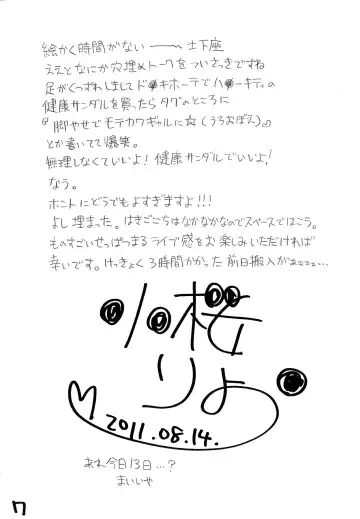 絵かく時間がない――― 土下座
ええとなにか穴埋めトークをついさっきですね
足がくつずれしましてド○キホーテでハ○ーキティの
健康サンダルを買ったらタグのところに
『脚やせでモテカワギャルに☆(うろおぼえ)』
とか書いてて爆笑。
無理しなくていいよ!健康サンダルでいいよ!
なう。
ホントにどうでもよすぎますよ!!!
よし埋まった。はきごこちはなかなかなのでスペースではこう。
ものすごいせっぱつまるライブ感をお楽しみいただければ
幸いです。けっきょく3時間かかった前日搬入がぁぁぁぁ…
小桜
りよ
2011.08.14.
あれ今日13日…?
まいいや
7